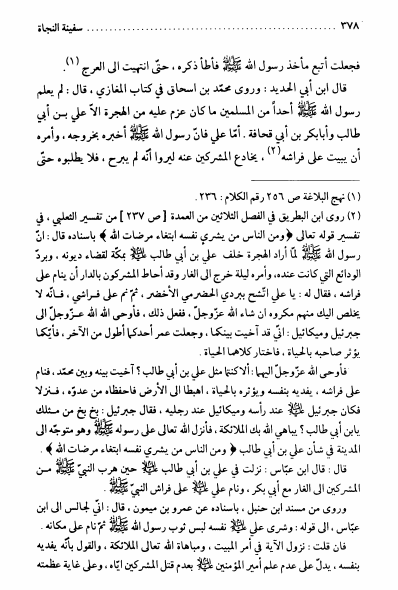 ٣٧٨ ........................................ سفينة النجاة
فجعلت أتبع مأخذ رسول الله ﷺ فأطأ ذكره ، حتّى انتهيت الى العرج (١).
قال ابن أبي الحديد : وروى محمّد بن اسحاق في كتاب المغازي ، قال : لم يعلم
رسول الله ﷺ أحداً من المسلمين ما كان عزم عليه من الهجرة الاّ علي بن أبي
طالب وأبابكر بن أبي قحافة . أمّا علي فانّ رسول الله ﷺ أخبره بخروجه ، وأمره
أن يبيت على فراشه (٢) ، يخادع المشركين عنه ليروا أنّه لم يبرح ، فلا يطلبوه حتّى
(١) نهج البلاغة ص ٢٥٦ رقم الكلام : ٢٣٦ .
(٢) روى ابن البطريق في الفصل الثلاثين من العمدة [ ص ٢٣٧ ] من تفسير الثعلبي ، في
تفسير قوله تعالى ﴿ ومن الناس من يشري نفسه ابتغاء مرضات الله ﴾ باسناده قال : انّ
رسول الله ﷺ لمّا أراد الهجرة خلف علي بن أبي طالب بمكّة لقضاء ديونه ، وبردّ
الودائع التي كانت عنده، وأمره ليلة خرج الى الغار وقد أحاط المشركون بالدار أن ينام على
فراشه ، فقال له : يا علي اتّشح ببردي الحضرمي الأخضر ، ثمّ نم على فراشي ، فانّه لا
يخلص اليك منهم مكروه ان شاء الله عزّوجلّ ، ففعل ذلك ، فأوحى الله الله عزّوجلّ الى
جبرئيل وميكائيل : انّي قد آخيت بينكما ، وجعلت عمر أحدكما أطول من الآخر ، فأيّكما
يؤثر صاحبه بالحياة ، فاختار كلاهما الحياة .
فأوحى الله عزّوجلّ اليهما: ألا كنتما مثل علي بن أبي طالب؟ آخيت بينه وبين محمّد، فنام
على فراشه ، يفديه بنفسه ويؤثره بالحياة ، اهبطا الى الأرض فاحفظاه من عدوّه ، فنزلا
فكان جبرئيل عند رأسه وميكائيل عند رجليه ، فقال جبرئيل : بخ بخ من مثلك
يابن أبي طالب ؟ يباهي الله بك الملائكة ، فأنزل الله تعالى على رسوله ﷺ وهو متوجّه الى
المدينة في شأن علي بن أبي طالب ﴿ ومن الناس من يشري نفسه ابتغاء مرضات الله ﴾ .
قال : قال ابن عبّاس : نزلت في علي بن أبي طالب حين هرب النبيّ ﷺ من
المشركين الى الغار مع أبي بكر ، ونام علي على فراش النبيّ ﷺ .
وروي من مسند ابن حنبل ، باسناده عن عمرو بن ميمون ، قال : انّي لجالس الى ابن
عبّاس ، الى قوله : وشرى علي نفسه لبس ثوب رسول الله ﷺ ثمّ نام على مكانه .
فان قلت : نزول الآية في أمر المبيت ، ومباهاة الله تعالى الملائكة ، والقول بأنّه يفديه
بنفسه ، يدلّ على عدم علم أمير المؤمنين بعدم قتل المشركين ايّاه ، وعلى غاية عظمته